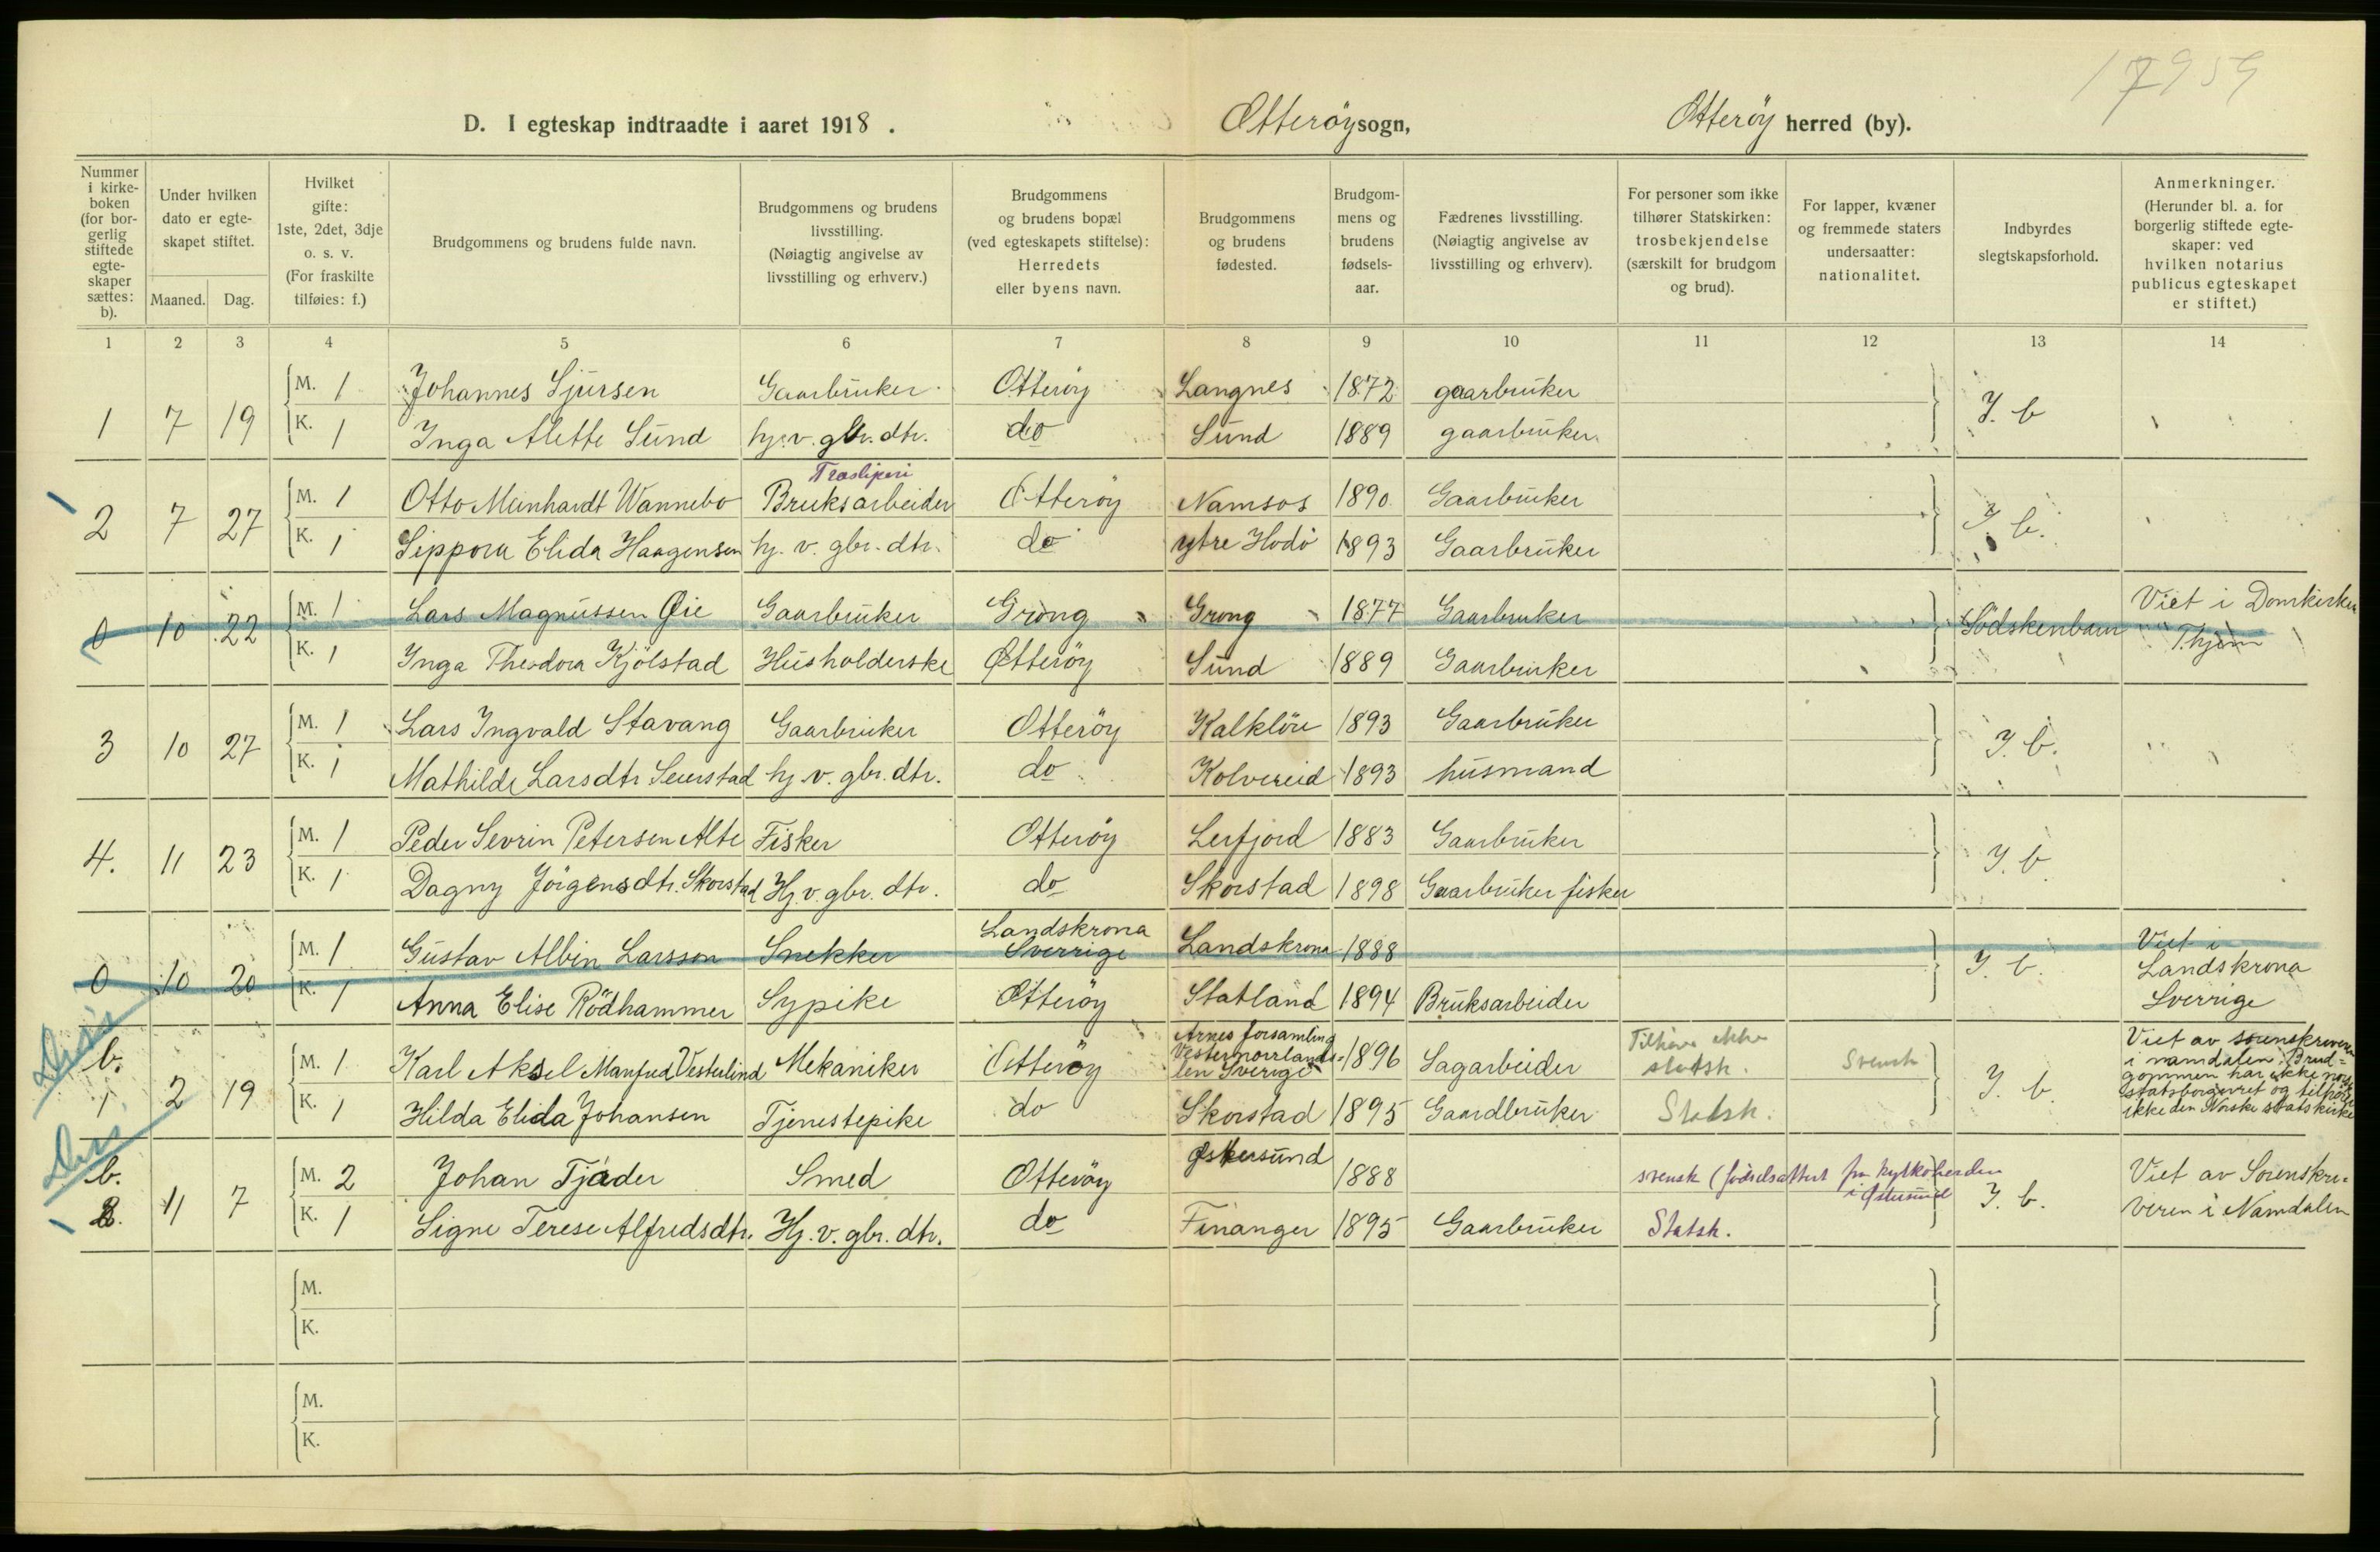 17959
D. I egteskap indtraadte i aaret 1918. Otterøy sogn, Otterøy herred (by).
Nummer i kirkeboken (for borgerlig stiftede egteskaper sættes: b).
Under hvilken dato er egteskapet stiftet.
Maaned. Dag.
Hvilket gifte: 1ste, 2det, 3dje o. s. v. (For fraskilte tilføies: f.)
Brudgommens og brudens fulde navn.
Brudgommens og brudens livsstilling. (Nøiagtig angivelse av livsstilling og erhverv.)
Brudgommens og brudens bopæl (ved egteskapets stiftelse): Herredets eller byens navn.
Brudgommens og brudens fødested.
Brudgommens og brudens fødselsaar.
Fædrenes livsstilling. (Nøiagtig angivelse av livsstilling og erhverv).
For personer som ikke tilhører Statskirken: trosbekjendelse (særskilt for brudgom og brud).
For lapper, kvæner og fremmede staters undersaatter: nationalitet.
Indbyrdes slegtskapsforhold.
Anmerkninger. (Herunder bl. a. for borgerlig stiftede egteskaper: ved hvilken notarius publicus egteskapet er stiftet.)
1 2 3 4 5 6 7 8 9 10 11 12 13 14
M. 1 Johannes Sjursen Gaarbruker Otterøy Langnes 1872 gaarbruker
1 7 19 J. b
K. 1 Inga Alette Sund hj. v. gbr. dtr. do Sund 1889 gaarbruker
Træsliperi
M. 1 Otto Meinhardt Wannebo Bruksarbeider Otterøy Namsos 1890 Gaarbruker
2 7 27 J. b.
K. 1 Sippora Elida Haagensen hj. v. gbr. dtr. do ytre Hodø 1893 Gaarbruker
M. 1 Lars Magnussen Øie Gaarbruker Grong Grong 1877 Gaarbruker Viet i Domkirken
0 10 22 Södskenbarn Thjem
K. 1 Inga Theodora Kjölstad Husholderske Otterøy Sund 1889 Gaarbruker
M. 1 Lars Ingvald Stavang Gaarbruker Otterøy Kalkløv 1893 Gaarbruker
3 10 27 J. b.
K. 1 Mathilde Larsdtr Seierstad hj. v. gbr. dtr. do Kolvereid 1893 husmand
M. 1 Peder Sevrin Petersen Alte Fisker Otterøy Lerfjord 1883 Gaarbruker
4. 11 23 J. b
K. 1 Dagny Jörgensdtr. Skorstad Hj. v. gbr. dtr. do Skorstad 1898 Gaarbruker fisker
Landskrona
M. 1 Gustav Albin Larsson Snekker Sverrige Landskrona 1888 Viet i
0 10 20 J. b. Landskrona
K. 1 Anna Elise Rödhammer Sypike Otterøy Statland 1894 Bruksarbeider Sverrige
Arnes forsamling
Vesternorrlands-
len Sverige
b. M. 1 Karl Aksel Manfred Vesterlind Mekaniker Otterøy 1896 Sagarbeider Tilhører ikke statsk. Svensk
1 2 19 J. b.
K. 1 Hilda Elida Johansen Tjenestepike do Skorstad 1895 Gaardbruker Statsk.
Viet av sorenskriveren
i namdalen. Brud-
gommen har ikke norsk
statsborgerret og tilhører
ikke den Norske statskirke
b. M. 2 Johan Tjäder Smed Otterøy 1888 svensk (fødselsattest fra kyrkoherden
2. 11 7 J. b. Viet av Sorenskri-
veren i Namdalen
K. 1 Signe Terese Alfredsdtr. Hj. v. gbr. dtr. do Finanger 1895 Gaarbruker Statsk.
M.
K.
M.
K.